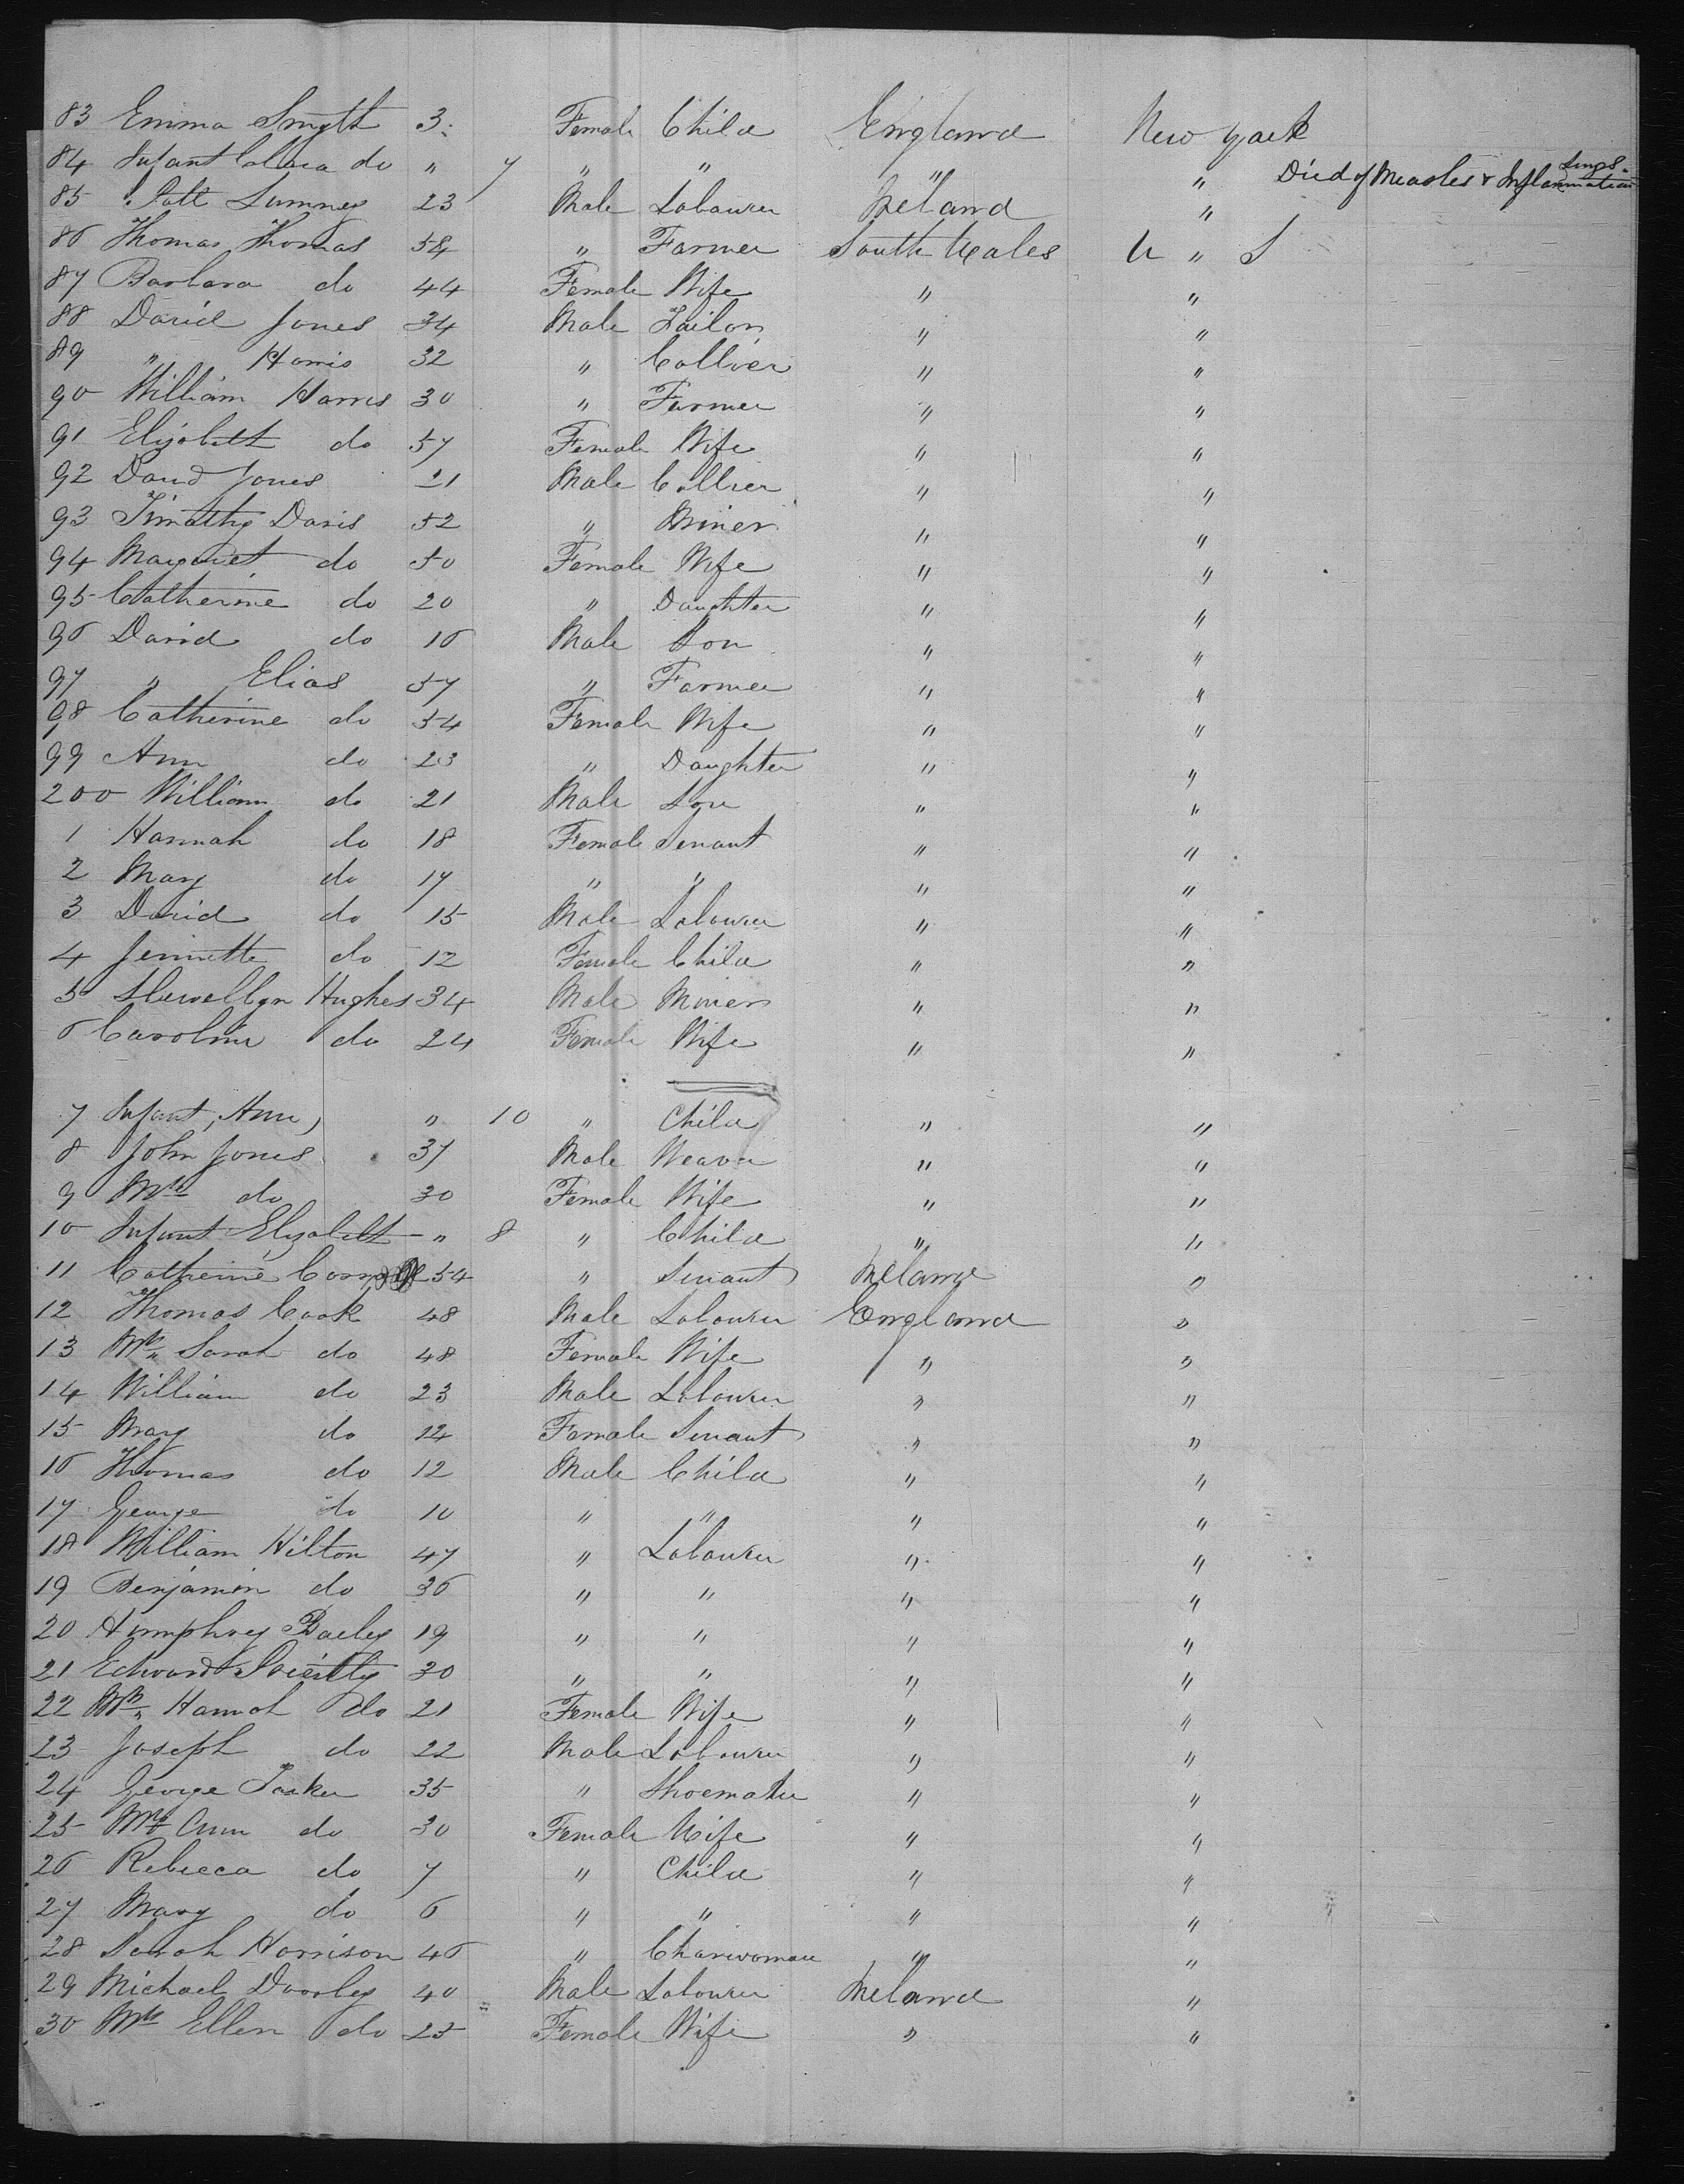 83 Emma Smyth 3 Female Child England New York
84 Infant Clara do " 7 " " " " Died of Measles & Inflammation Lungs
85 Patt Sumney 23 Male Labourer Ireland "
86 Thomas Thomas 54 " Farmer South Wales U " S
87 Barbara do 44 Female Wife " "
88 David Jones 34 Male Tailor " "
89 " Harris 32 " Collier " "
90 William Harris 30 " Farmer " "
91 Elizabeth do 57 Female Wife " "
92 David Jones 21 Male Collier " "
93 Timothy Davis 52 " Miner " "
94 Margaret do 50 Female Wife " "
95 Catherine do 20 " Daughter " "
96 David do 16 Male Son " "
97 " Elias 57 " Farmer " "
98 Catherine do 54 Female Wife " "
99 Ann do 23 " Daughter " "
200 William do 21 Male Son " "
1 Hannah do 18 Female Servant " "
2 Mary do 17 " " " "
3 David do 15 Male Labourer " "
4 Jennette do 12 Female Child " "
5 Llewellyn Hughes 34 Male Miner " "
6 Caroline do 24 Female Wife " "
7 Infant, Ann, " 10 " Child " "
8 John Jones 37 Male Weaver " "
9 Mrs do 30 Female Wife " "
10 Infant Elizabeth - " 8 " Child " "
11 Catherine 54 " Servant Ireland "
12 Thomas Cook 48 Male Labourer England "
13 Mrs Sarah do 48 Female Wife " "
14 William do 23 Male Labourer " "
15 Mary do 14 Female Servant " "
16 Thomas do 12 Male Child " "
17 George do 10 " " " "
18 William Hilton 47 " Labourer " "
19 Benjamin do 36 " " " "
20 Humphrey Bailey 19 " " " "
21 Edward 30 " " " "
22 Mrs Hannah do 21 Female Wife " "
23 Joseph do 22 Male Labourer " "
24 George Parker 35 " Shoemaker " "
25 Mrs Ann do 30 Female Wife " "
26 Rebecca do 7 " Child " "
27 Mary do 6 " " " "
28 Sarah Harrison 46 " Charwoman " "
29 Michael Doorley 40 Male Labourer Ireland "
30 Mrs Ellen do 25 Female Wife " "